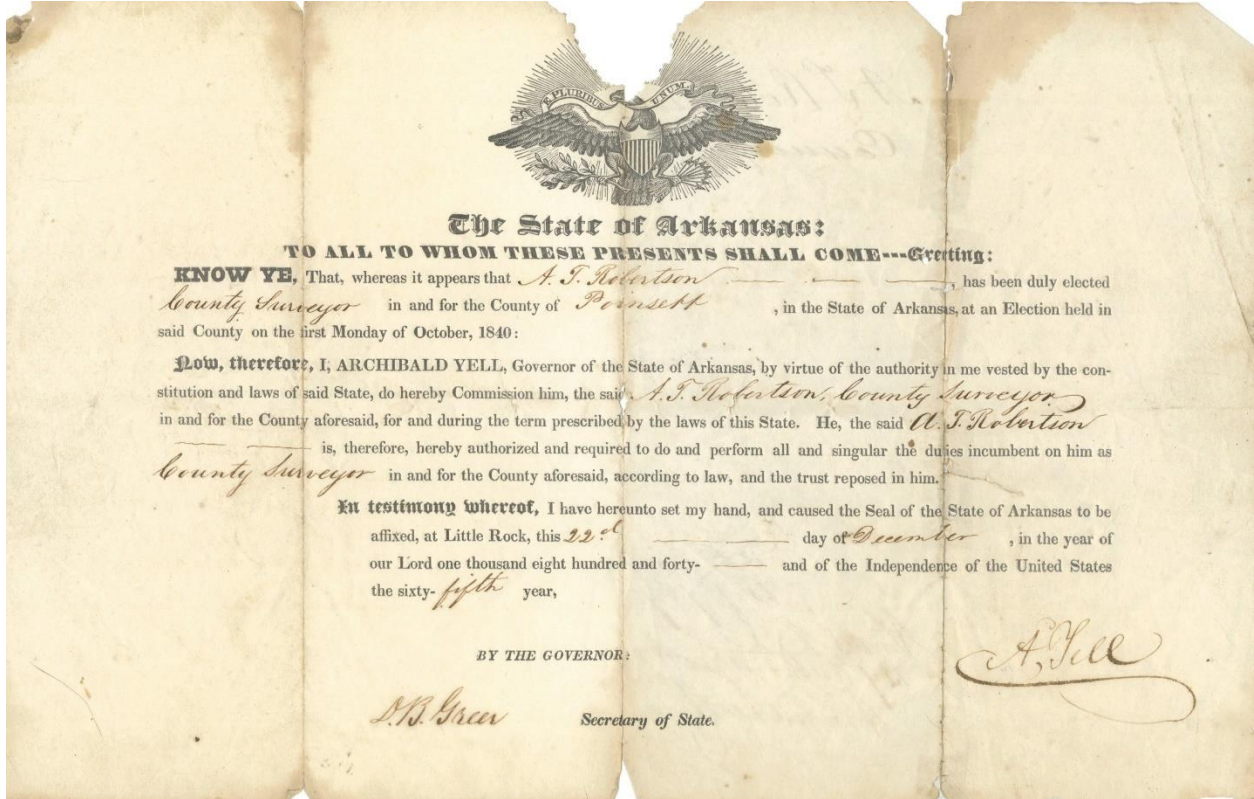 E PLURIBUS UNUM.
The State of Arkansas:
TO ALL TO WHOM THESE PRESENTS SHALL COME---Greeting:
KNOW YE, That, whereas it appears that A. T. Robertson — — —, has been duly elected
County Surveyor in and for the County of Poinsett , in the State of Arkansas, at an Election held in
said County on the first Monday of October, 1840:
Now, therefore, I, ARCHIBALD YELL, Governor of the State of Arkansas, by virtue of the authority in me vested by the con-
stitution and laws of said State, do hereby Commission him, the said A. T. Robertson, County Surveyor
in and for the County aforesaid, for and during the term prescribed by the laws of this State. He, the said A. T. Robertson
— — is, therefore, hereby authorized and required to do and perform all and singular the duties incumbent on him as
County Surveyor in and for the County aforesaid, according to law, and the trust reposed in him.
In testimony whereof, I have hereunto set my hand, and caused the Seal of the State of Arkansas to be
affixed, at Little Rock, this 22d — — day of December , in the year of
our Lord one thousand eight hundred and forty- — and of the Independence of the United States
the sixty- fifth year,
A. Yell
BY THE GOVERNOR:
D. B. Greer Secretary of State.